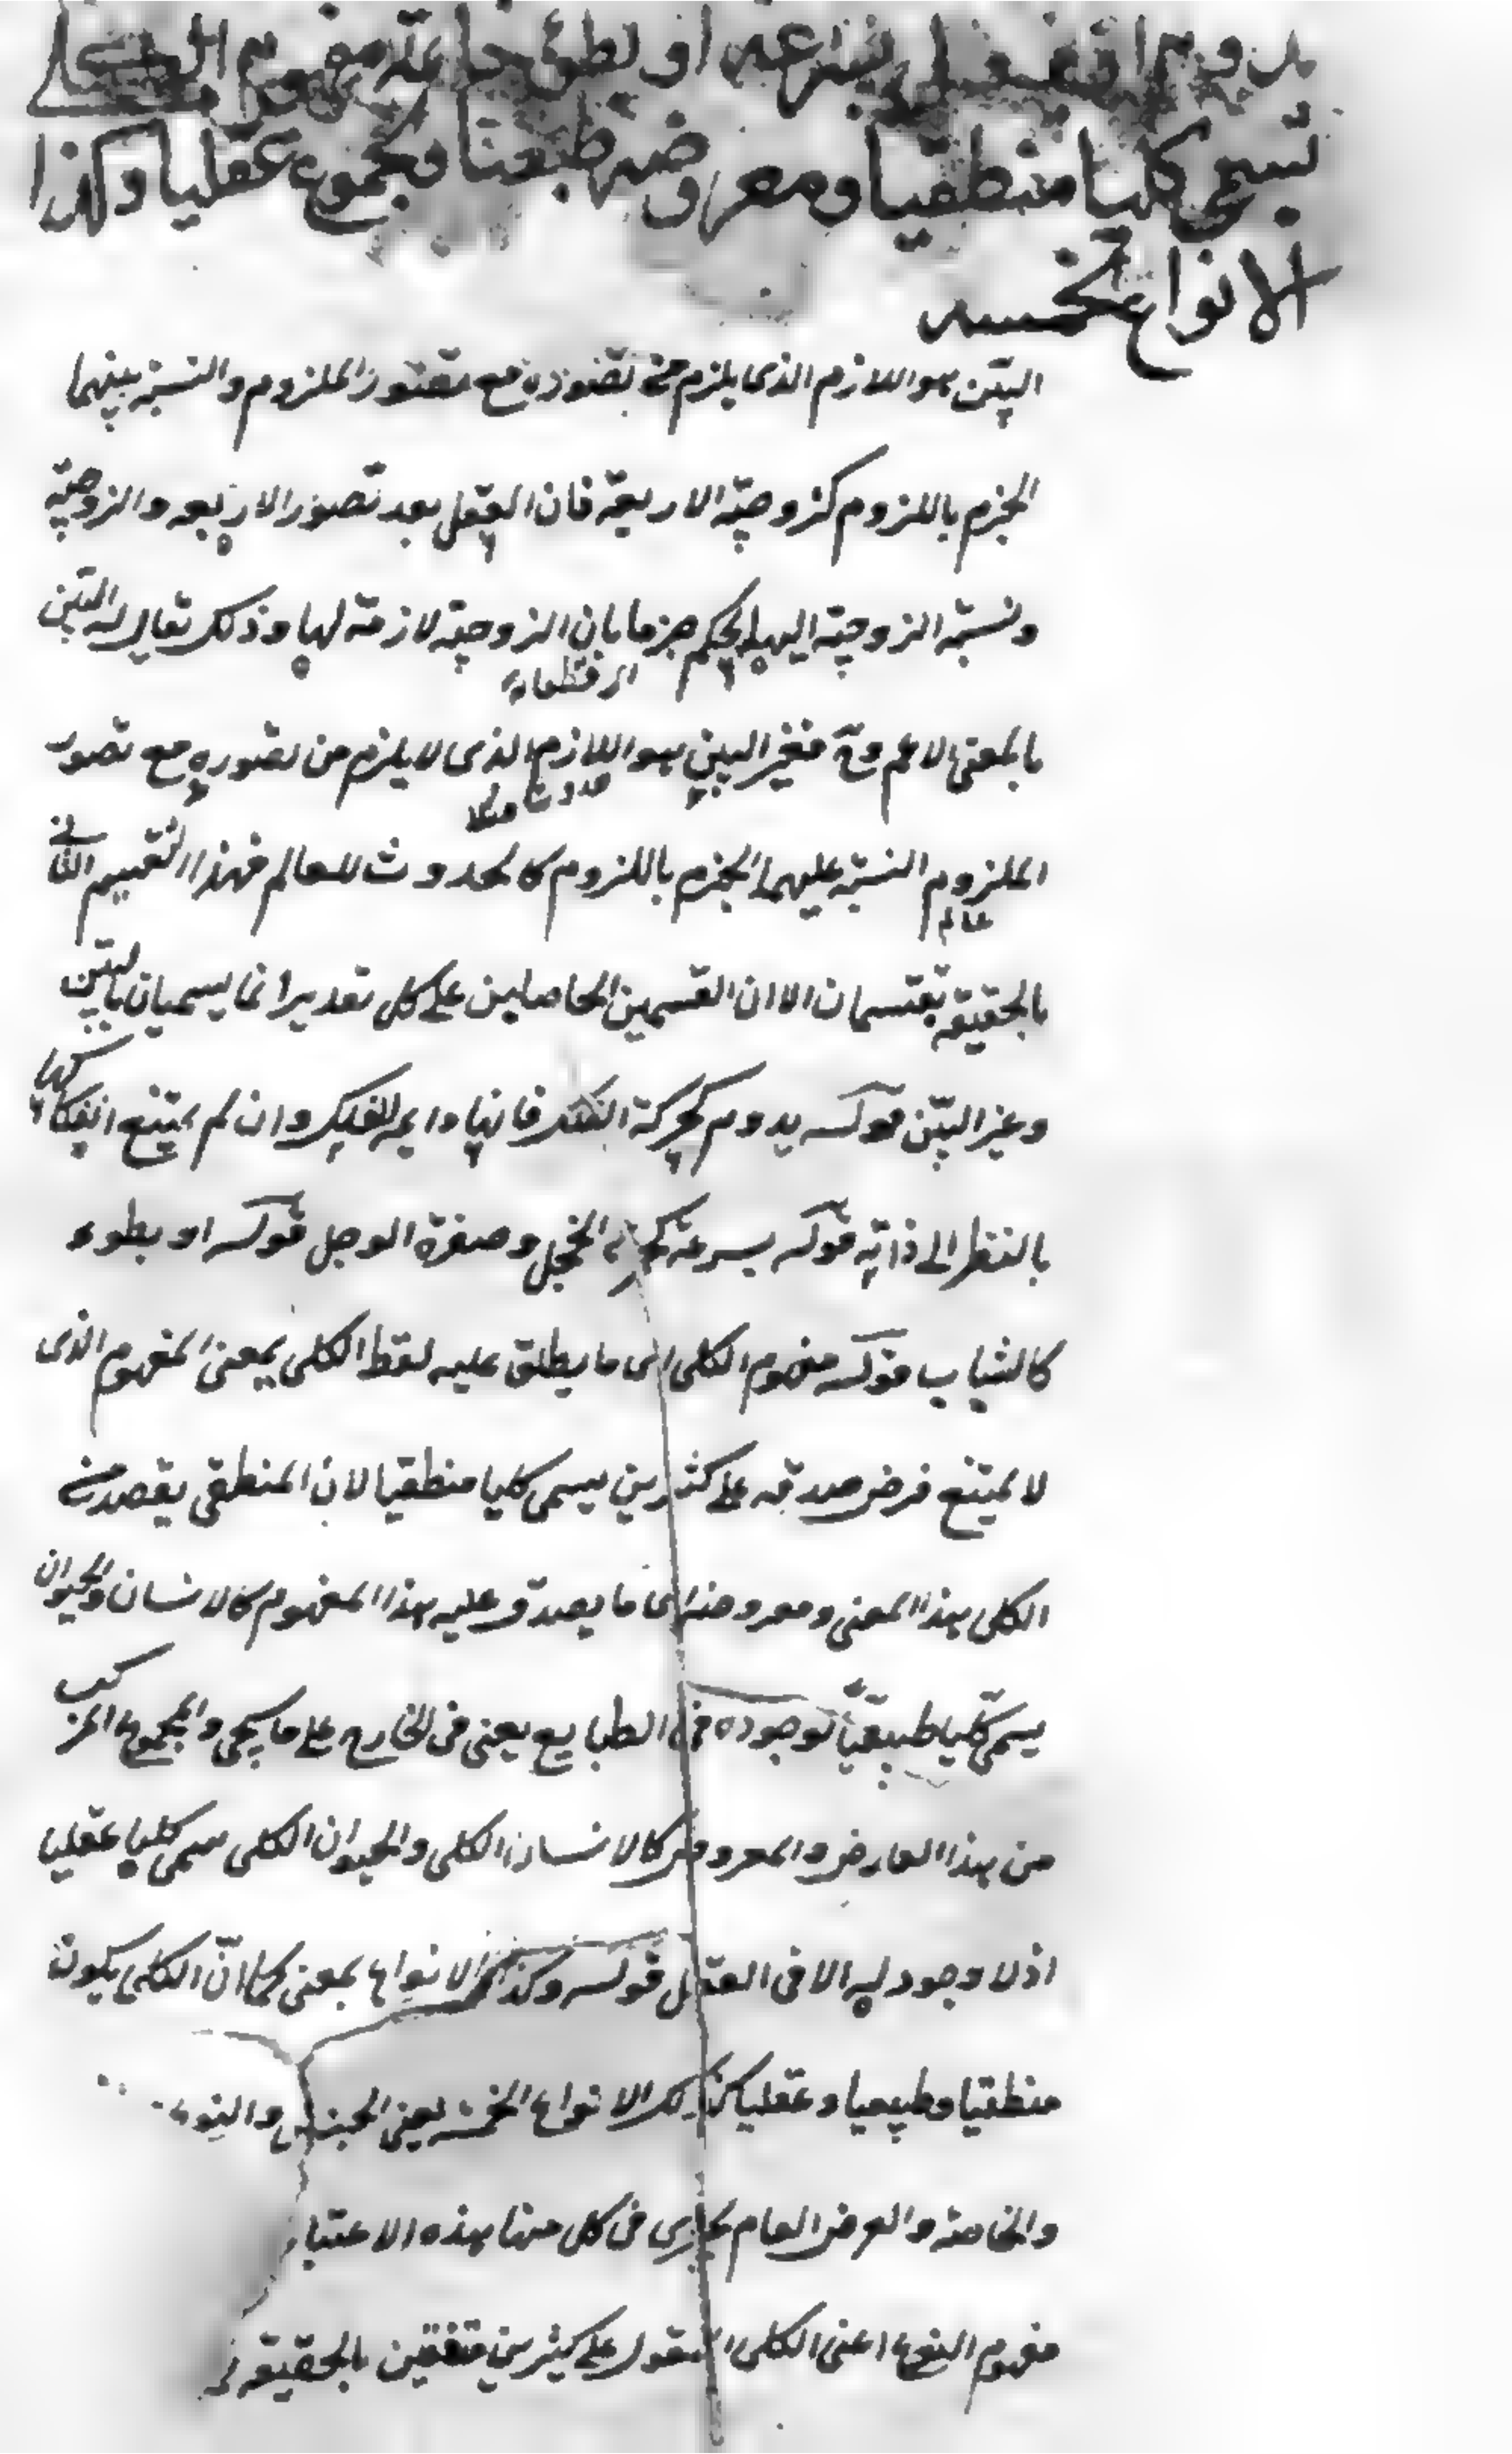 يدوم او يزول بسرعة او بطوء خاتمة مفهوم الكلي
تسمى كليا منطقيا ومعروضه طبعيا والمجموع عقليا وكذا
الانواع الخمسه
البيّن هو اللازم الذى يلزم من تصوره مع تصور الملزوم والنسبة بينهما
الجزم باللزوم كزوجيّة الاربعة فان العقل بعد تصور الاربعه والزوجيّة
ونسبة الزوجيّة اليها يحكم جزما بان الزوجيّة لازمة لها وذلك يقال له البيّن
بالمعنى الاعم وح فغير البين هو اللازم الذى لا يلزم من تصوره مع تصور
الملزوم النسبة عليهما الجزم باللزوم كالحدوث للعالم فهذا التقسيم الثانى
بالحقيقة تقسيمان الا ان القسمين الحاصلين على كل تقدير انما يسميان بالبيّن
وغير البيّن قوله يدوم كحركة الفلك فانها دايمه للفلك وان لم يمتنع انفكاكها
بالنظر الى ذاته قوله بسرعة كحمرة الخجل وصفرة الوجل قوله او بطوء
كالشباب قوله مفهوم الكلى اى ما يطلق عليه لفظ الكلى يعنى المفهوم الذى
لا يمتنع فرض صدقه على كثيرين يسمى كليا منطقيا لان المنطقى يقصد من
الكلى هذا المعنى ومعروضه اى ما يصدق عليه هذا المفهوم كالانسان والحيوان
يسمى كليّا طبيعيّا لوجوده فى الطبايع يعنى فى الخارج على ما يجى والمجموع المركب
من هذا العارض والمعروض كالانسان الكلى والحيوان الكلى يسمى كليا عقليا
اذ لا وجود له الا فى العقل قوله وكذا الانواع بمعنى كما انّ الكلى يكون
منطقيا وطبيعيا وعقليا كذلك الانواع الخمسه يعنى الجنس والنوع
والخاصة والعرض العام يجرى فى كل منها هذه الاعتبار
مفهوم النوع اعنى الكلى المقول على كثيرين متفقين بالحقيقة